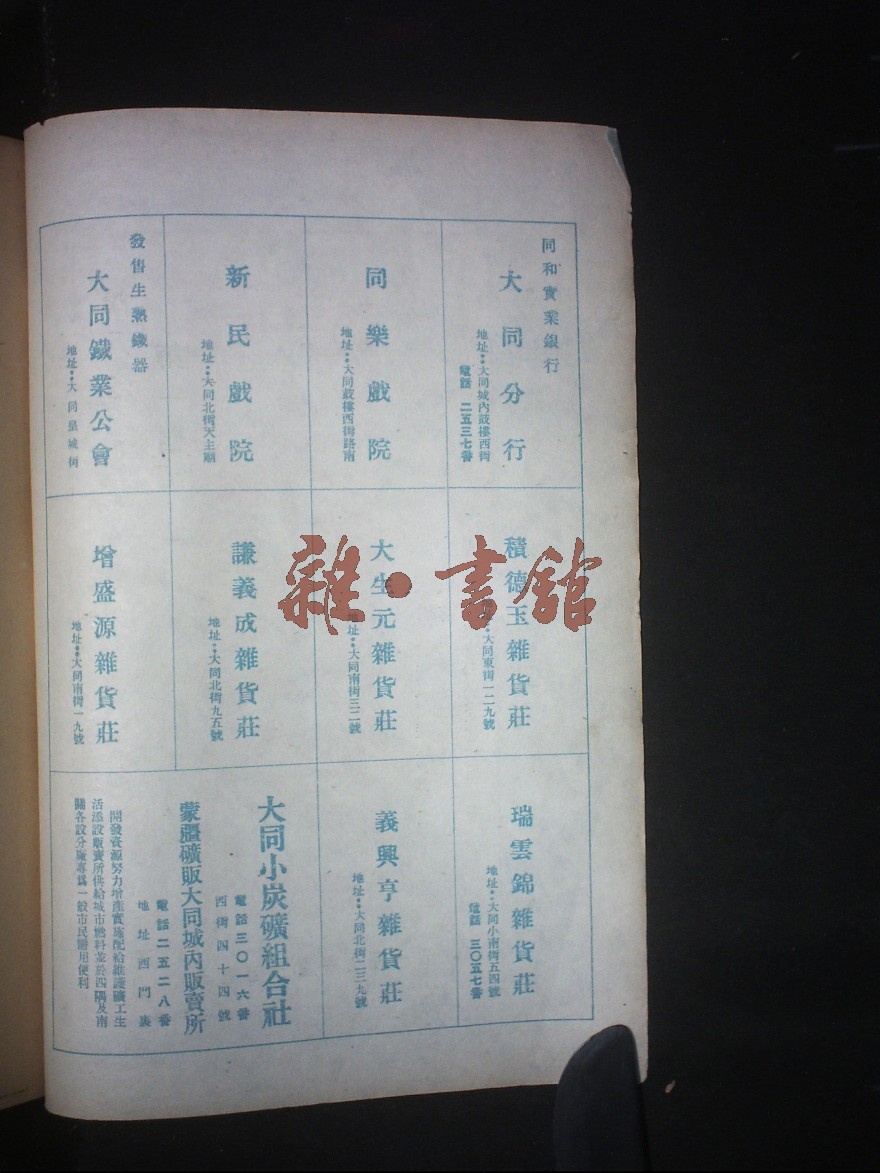 同和實業銀行
大同分行
地址：大同城內鼓樓西街
電話 二五三七番
同樂戲院
地址：大同鼓樓西街路南
新民戲院
地址：大同北街天主廟
發售生熟鐵器
大同鐵業公會
地址：大同皇城街
積德玉雜貨莊
：大同東街一二九號
大生元雜貨莊
地址：大同南街三二號
謙義成雜貨莊
地址：大同北街九五號
增盛源雜貨莊
地址：大同南街一九號
瑞雲錦雜貨莊
地址：大同小南街五四號
電話 三〇五七番
義興亨雜貨莊
地址：大同北街二三九號
大同小炭礦組合社
電話三〇一六番
西街四十四號
蒙疆礦販大同城內販賣所
電話二五二八番
地址西門裏
開發資源努力增產實施配給維護礦工生
活添設販賣所供給城市燃料並於四隅及南
關各設分廠專爲一般市民購用便利
雜·書館